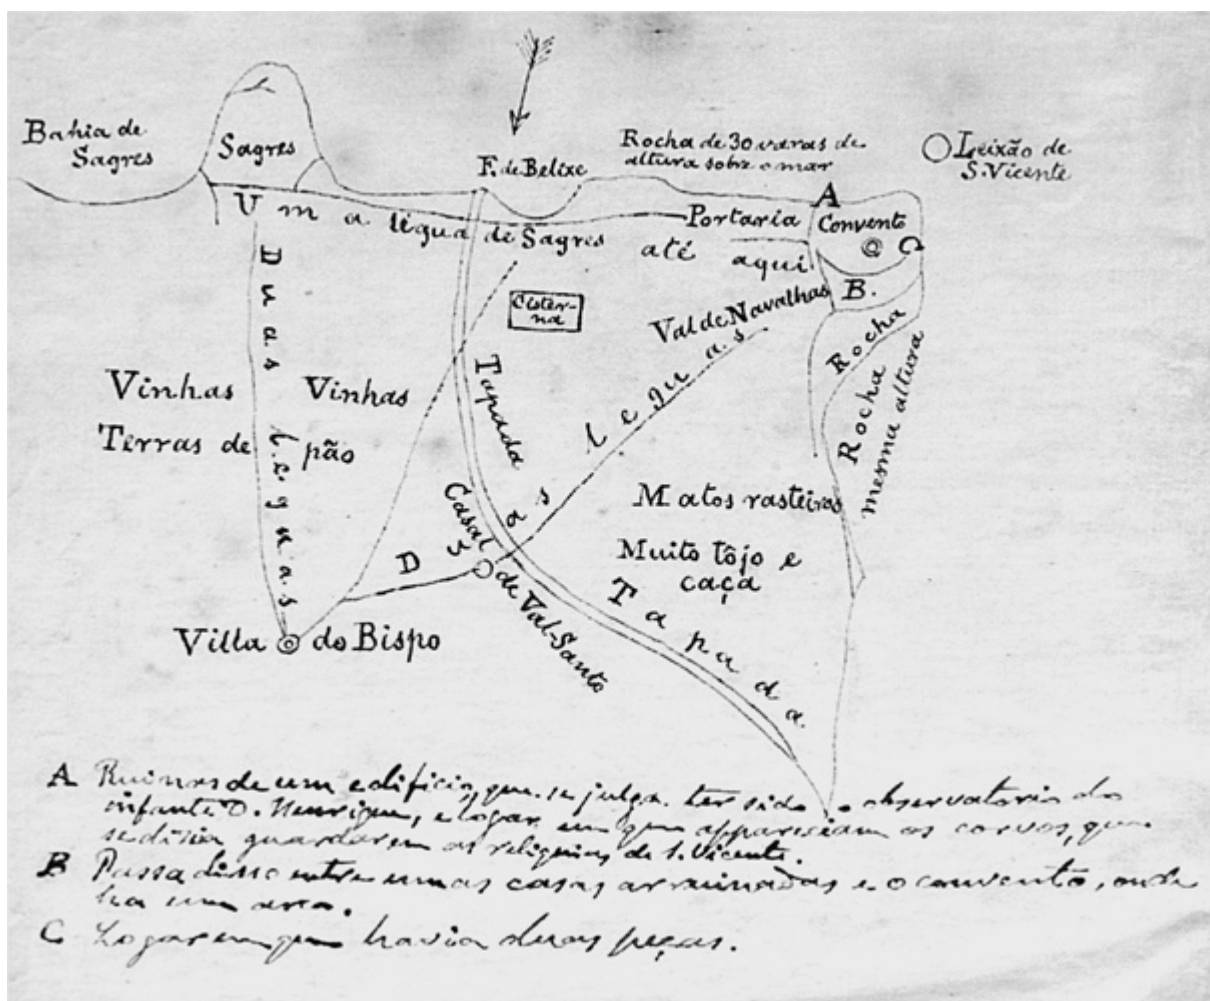 Bahia de
Sagres
Sagres
F. de Belixe
Rocha de 30 varas de
altura sobre o mar
Leixão de
S. Vicente
A
Uma légua de Sagres
até
aqui
Portaria
Convento
C
B.
Duas leguas
Cister-
na
Val de Navalhas
Rocha
Rocha
mesma altura
Vinhas
Vinhas
Terras de pão
Tapada
Duas leguas
Casal
de Val-Santo
Matos rasteiros
Muito tôjo e
caça
Tapada
Villa do Bispo
A Ruinas de um edificio, que se julga ter sido o observatorio do
infante D. Henrique, e logar em que appareciam os corvos, que
se dizia guardarem as reliquias de S. Vicente.
B Passadisso entre umas casas arruinadas e o convento, onde
ha um arco.
C Logar em que havia duas peças.